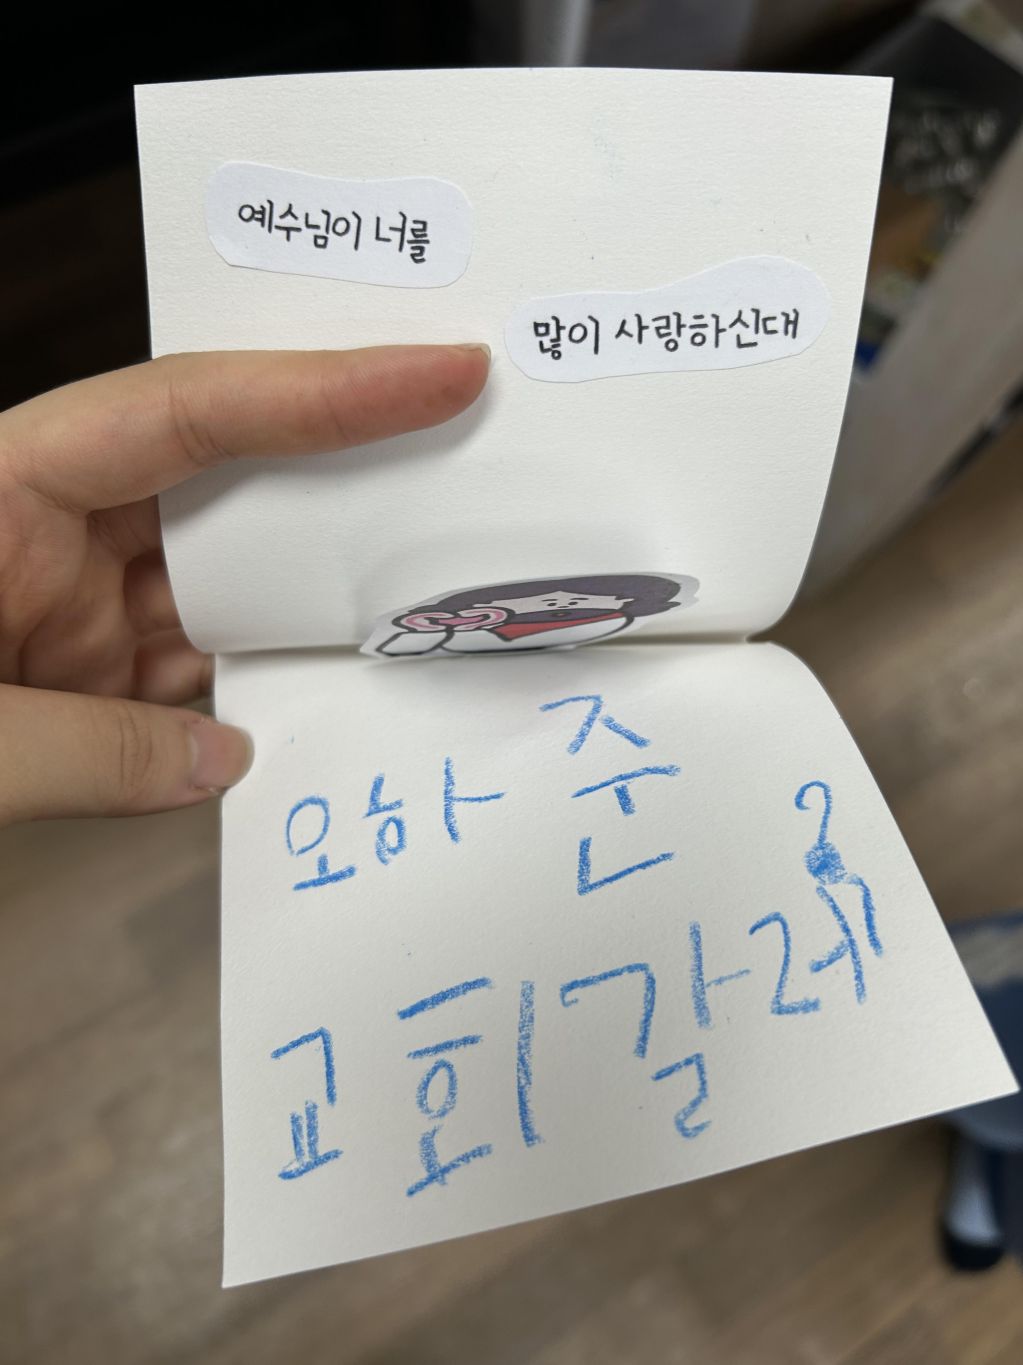 예수님이 너를
많이 사랑하신대
오하준
교회갈래?